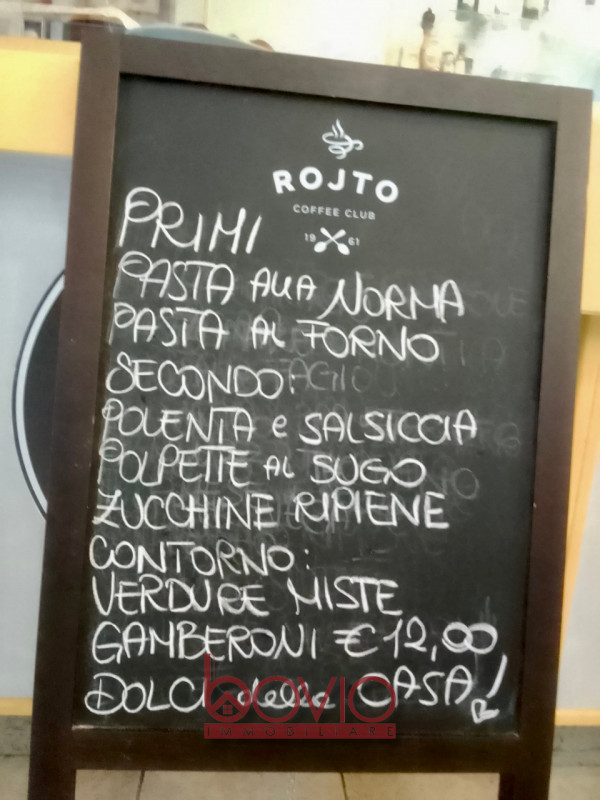 ROJTO
COFFEE CLUB
19 61
PRIMI
PASTA ALLA NORMA
PASTA AL FORNO
SECONDO:
POLENTA e SALSICCIA
POLPETTE AL SUGO
ZUCCHINE RIPIENE
CONTORNO:
VERDURE MISTE
GAMBERONI € 12,00
DOLCI della CASA!
bovio
IMMOBILIARE